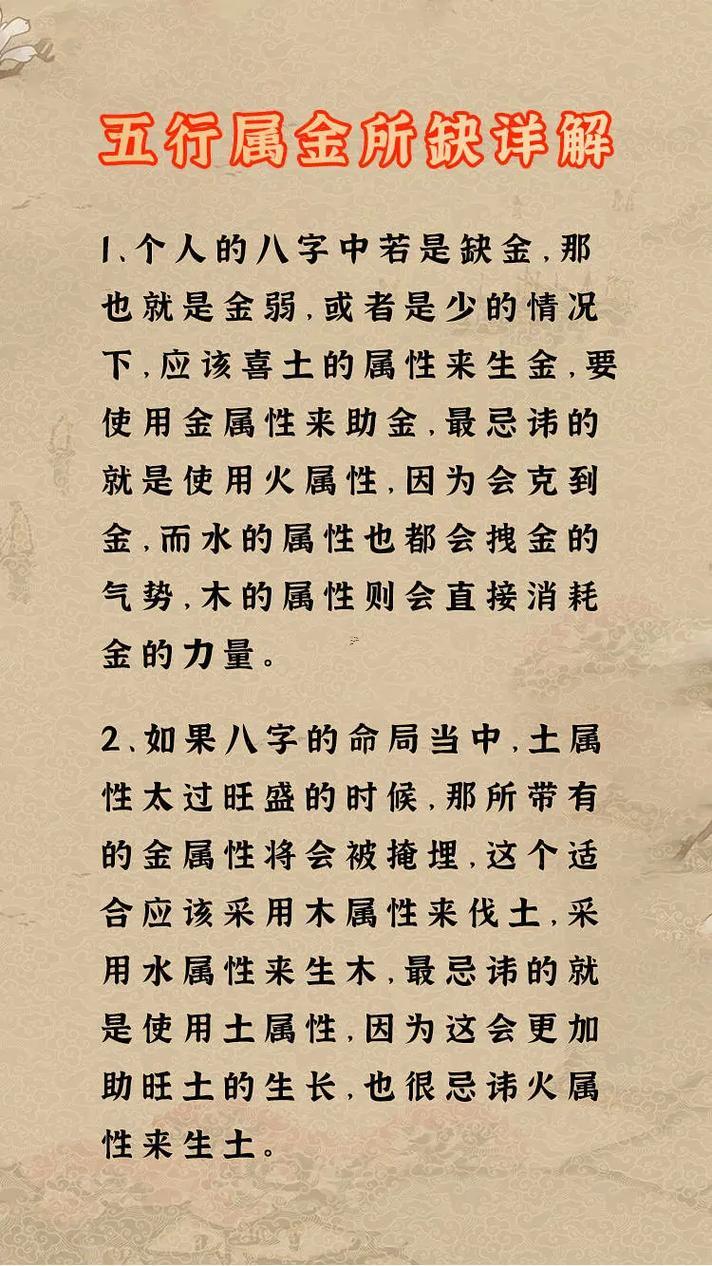 五行属金所缺详解
1、个人的八字中若是缺金,那
也就是金弱,或者是少的情况
下,应该喜土的属性来生金,要
使用金属性来助金,最忌讳的
就是使用火属性,因为会克到
金,而水的属性也都会拽金的
气势,木的属性则会直接消耗
金的力量。
2、如果八字的命局当中,土属
性太过旺盛的时候,那所带有
的金属性将会被掩埋,这个适
合应该采用木属性来伐土,采
用水属性来生木,最忌讳的就
是使用土属性,因为这会更加
助旺土的生长,也很忌讳火属
性来生土。